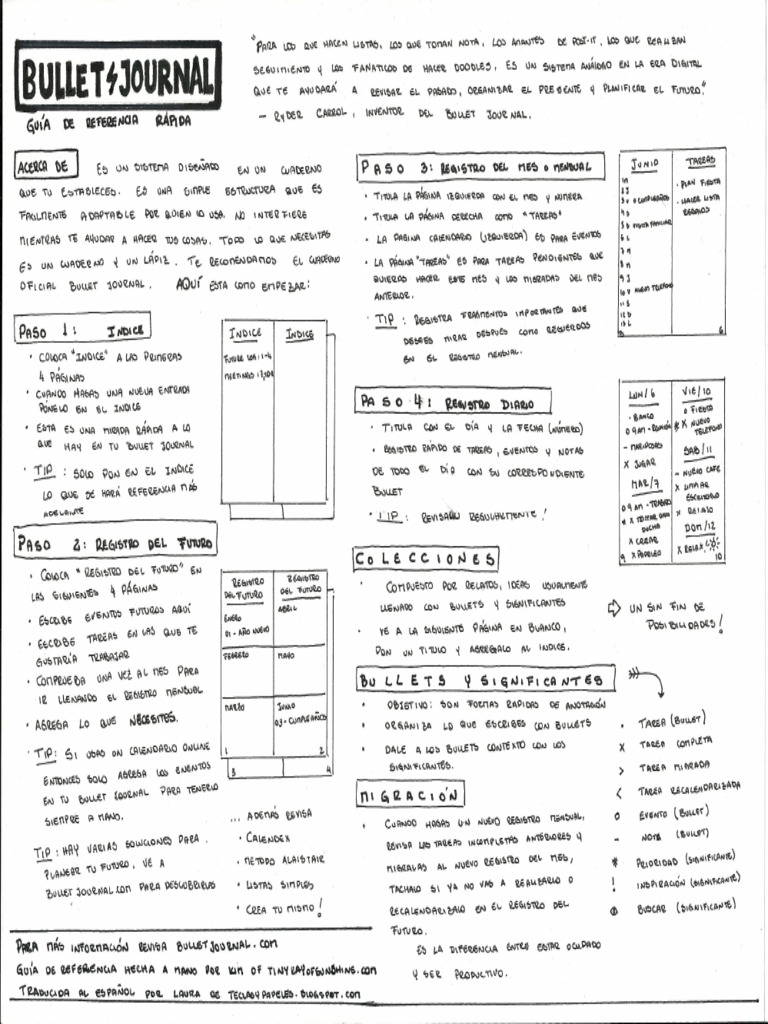 BULLET JOURNAL
GUÍA DE REFERENCIA RÁPIDA
"PARA LOS QUE HACEN LISTAS, LOS QUE TOMAN NOTA, LOS AMANTES DE POST-IT, LOS QUE REALIZAN
SEGUIMIENTO Y LOS FANATICOS DE HACER DOODLES. ES UN SISTEMA ANÁLOGO EN LA ERA DIGITAL
QUE TE AYUDARÁ A REVISAR EL PASADO, ORGANIZAR EL PRESENTE Y PLANIFICAR EL FUTURO."
- RYDER CARROL, INVENTOR DEL BULLET JOURNAL.
ACERCA DE ES UN SISTEMA DISEÑADO EN UN CUADERNO
QUE TU ESTABLECES. ES UNA SIMPLE ESTRUCTURA QUE ES
FACILMENTE ADAPTABLE POR QUIEN LO USA. NO INTERFIERE
MIENTRAS TE AYUDAR A HACER TUS COSAS. TODO LO QUE NECESITAS
ES UN CUADERNO Y UN LÁPIZ. TE RECOMENDAMOS EL CUADERNO
OFICIAL BULLET JOURNAL. AQUÍ ESTA COMO EMPEZAR:
PASO 1: INDICE
· COLOCA "INDICE" A LAS PRIMERAS
4 PÁGINAS
· CUANDO HAGAS UNA NUEVA ENTRADA
PÓNELO EN EL INDICE
· ESTA ES UNA MIRADA RÁPIDA A LO
QUE HAY EN TU BULLET JOURNAL
· TIP: SOLO PON EN EL INDICE
LO QUE SE HARÁ REFERENCIA MÁS
ADELANTE
INDICE INDICE
FUTURE LOG: 1-4
PASO 2: REGISTRO DEL FUTURO
· COLOCA "REGISTRO DEL FUTURO" EN
LAS SIGUIENTES 4 PÁGINAS
· ESCRIBE EVENTOS FUTUROS AQUÍ
· ESCRIBE TAREAS EN LAS QUE TE
GUSTARÍA TRABAJAR
· COMPRUEBA UNA VEZ AL MES PARA
IR LLENANDO EL REGISTRO MENSUAL
· AGREGA LO QUE NECESITES.
· TIP: SI USAS UN CALENDARIO ONLINE
ENTONCES SOLO AGREGA LOS EVENTOS
EN TU BULLET JOURNAL PARA TENERLO
SIEMPRE A MANO.
TIP: HAY VARIAS SOLUCIONES PARA
PLANEAR TU FUTURO, VE A
BULLET JOURNAL.COM PARA DESCUBRIRLOS
REGISTRO DEL FUTURO REGISTRO DEL FUTURO
ENERO ABRIL
01 - AÑO NUEVO
FEBRERO MAYO
MARZO JUNIO
03 - CUMPLEAÑOS
1 2
3 4
... ADEMÁS REVISA
· CALENDEX
· METODO ALASTAIR
· LISTAS SIMPLES
· CREA TU MISMO!
PASO 3: REGISTRO DEL MES O MENSUAL
· TITULA LA PÁGINA IZQUIERDA CON EL MES Y NUMERA
· TITULA LA PÁGINA DERECHA COMO "TAREAS"
· LA PAGINA CALENDARIO (IZQUIERDA) ES PARA EVENTOS
· LA PÁGINA "TAREAS" ES PARA TAREAS PENDIENTES QUE
QUIERAS HACER ESTE MES Y LOS MIGRADAS DEL MES
ANTERIOR.
· TIP: REGISTRA FRAGMENTOS IMPORTANTES QUE
DESEES MIRAR DESPUÉS COMO RECUERDOS
EN EL REGISTRO MENSUAL.
JUNIO TAREAS
· PLAN FIESTA
· HACER LISTA
REGALOS
5 6
PASO 4: REGISTRO DIARIO
· TITULA CON EL DÍA Y LA FECHA (NÚMERO)
· REGISTRO RÁPIDO DE TAREAS, EVENTOS Y NOTAS
DE TODO EL DÍA CON SU CORRESPONDIENTE
BULLET
· TIP: REVISARLO REGULARMENTE!
LUN/6 VIE/10
· BANCO O FIESTA
O 9AM - REUNIÓN * X NUEVO
TELEFONO
- MARIPOSAS SAB/11
X JUGAR - NUEVO CAFE
MAR/7 X LIMPIAR
ESCRITORIO
X CREAR X REGALO
DOM/12
X PAPELEO X RELAX
9 10
COLECCIONES
· COMPUESTO POR RELATOS, IDEAS USUALMENTE
LLENADO CON BULLETS Y SIGNIFICANTES
· VE A LA SIGUIENTE PÁGINA EN BLANCO,
PON UN TITULO Y AGREGALO AL INDICE.
⇨ UN SIN FIN DE
POSIBILIDADES!
BULLETS Y SIGNIFICANTES
· OBJETIVO: SON FORMAS RAPIDAS DE ANOTACIÓN
· ORGANIZA LO QUE ESCRIBES CON BULLETS
· DALE A LOS BULLETS CONTEXTO CON LOS
SIGNIFICANTES.
· TAREA (BULLET)
X TAREA COMPLETA
> TAREA MIGRADA
< TAREA RECALENDARIZADA
O EVENTO (BULLET)
- NOTA (BULLET)
* PRIORIDAD (SIGNIFICANTE)
! INSPIRACIÓN (SIGNIFICANTE)
Ø BUSCAR (SIGNIFICANTE)
MIGRACIÓN
· CUANDO HAGAS UN NUEVO REGISTRO MENSUAL,
REVISA LAS TAREAS INCOMPLETAS ANTERIORES Y
MIGRALAS AL NUEVO REGISTRO DEL MES,
TACHALO SI YA NO VAS A REALIZARLO O
RECALENDARIZALO EN EL REGISTRO DEL
FUTURO.
ES LA DIFERENCIA ENTRE ESTAR OCUPADO
Y SER PRODUCTIVO.
PARA MÁS INFORMACIÓN REVISA BULLETJOURNAL.COM
GUÍA DE REFERENCIA HECHA A MANO POR KIM OF TINYRAYOFSUNSHINE.COM
TRADUCIDA AL ESPAÑOL POR LAURA DE TECLASYPAPELES.BLOGSPOT.COM